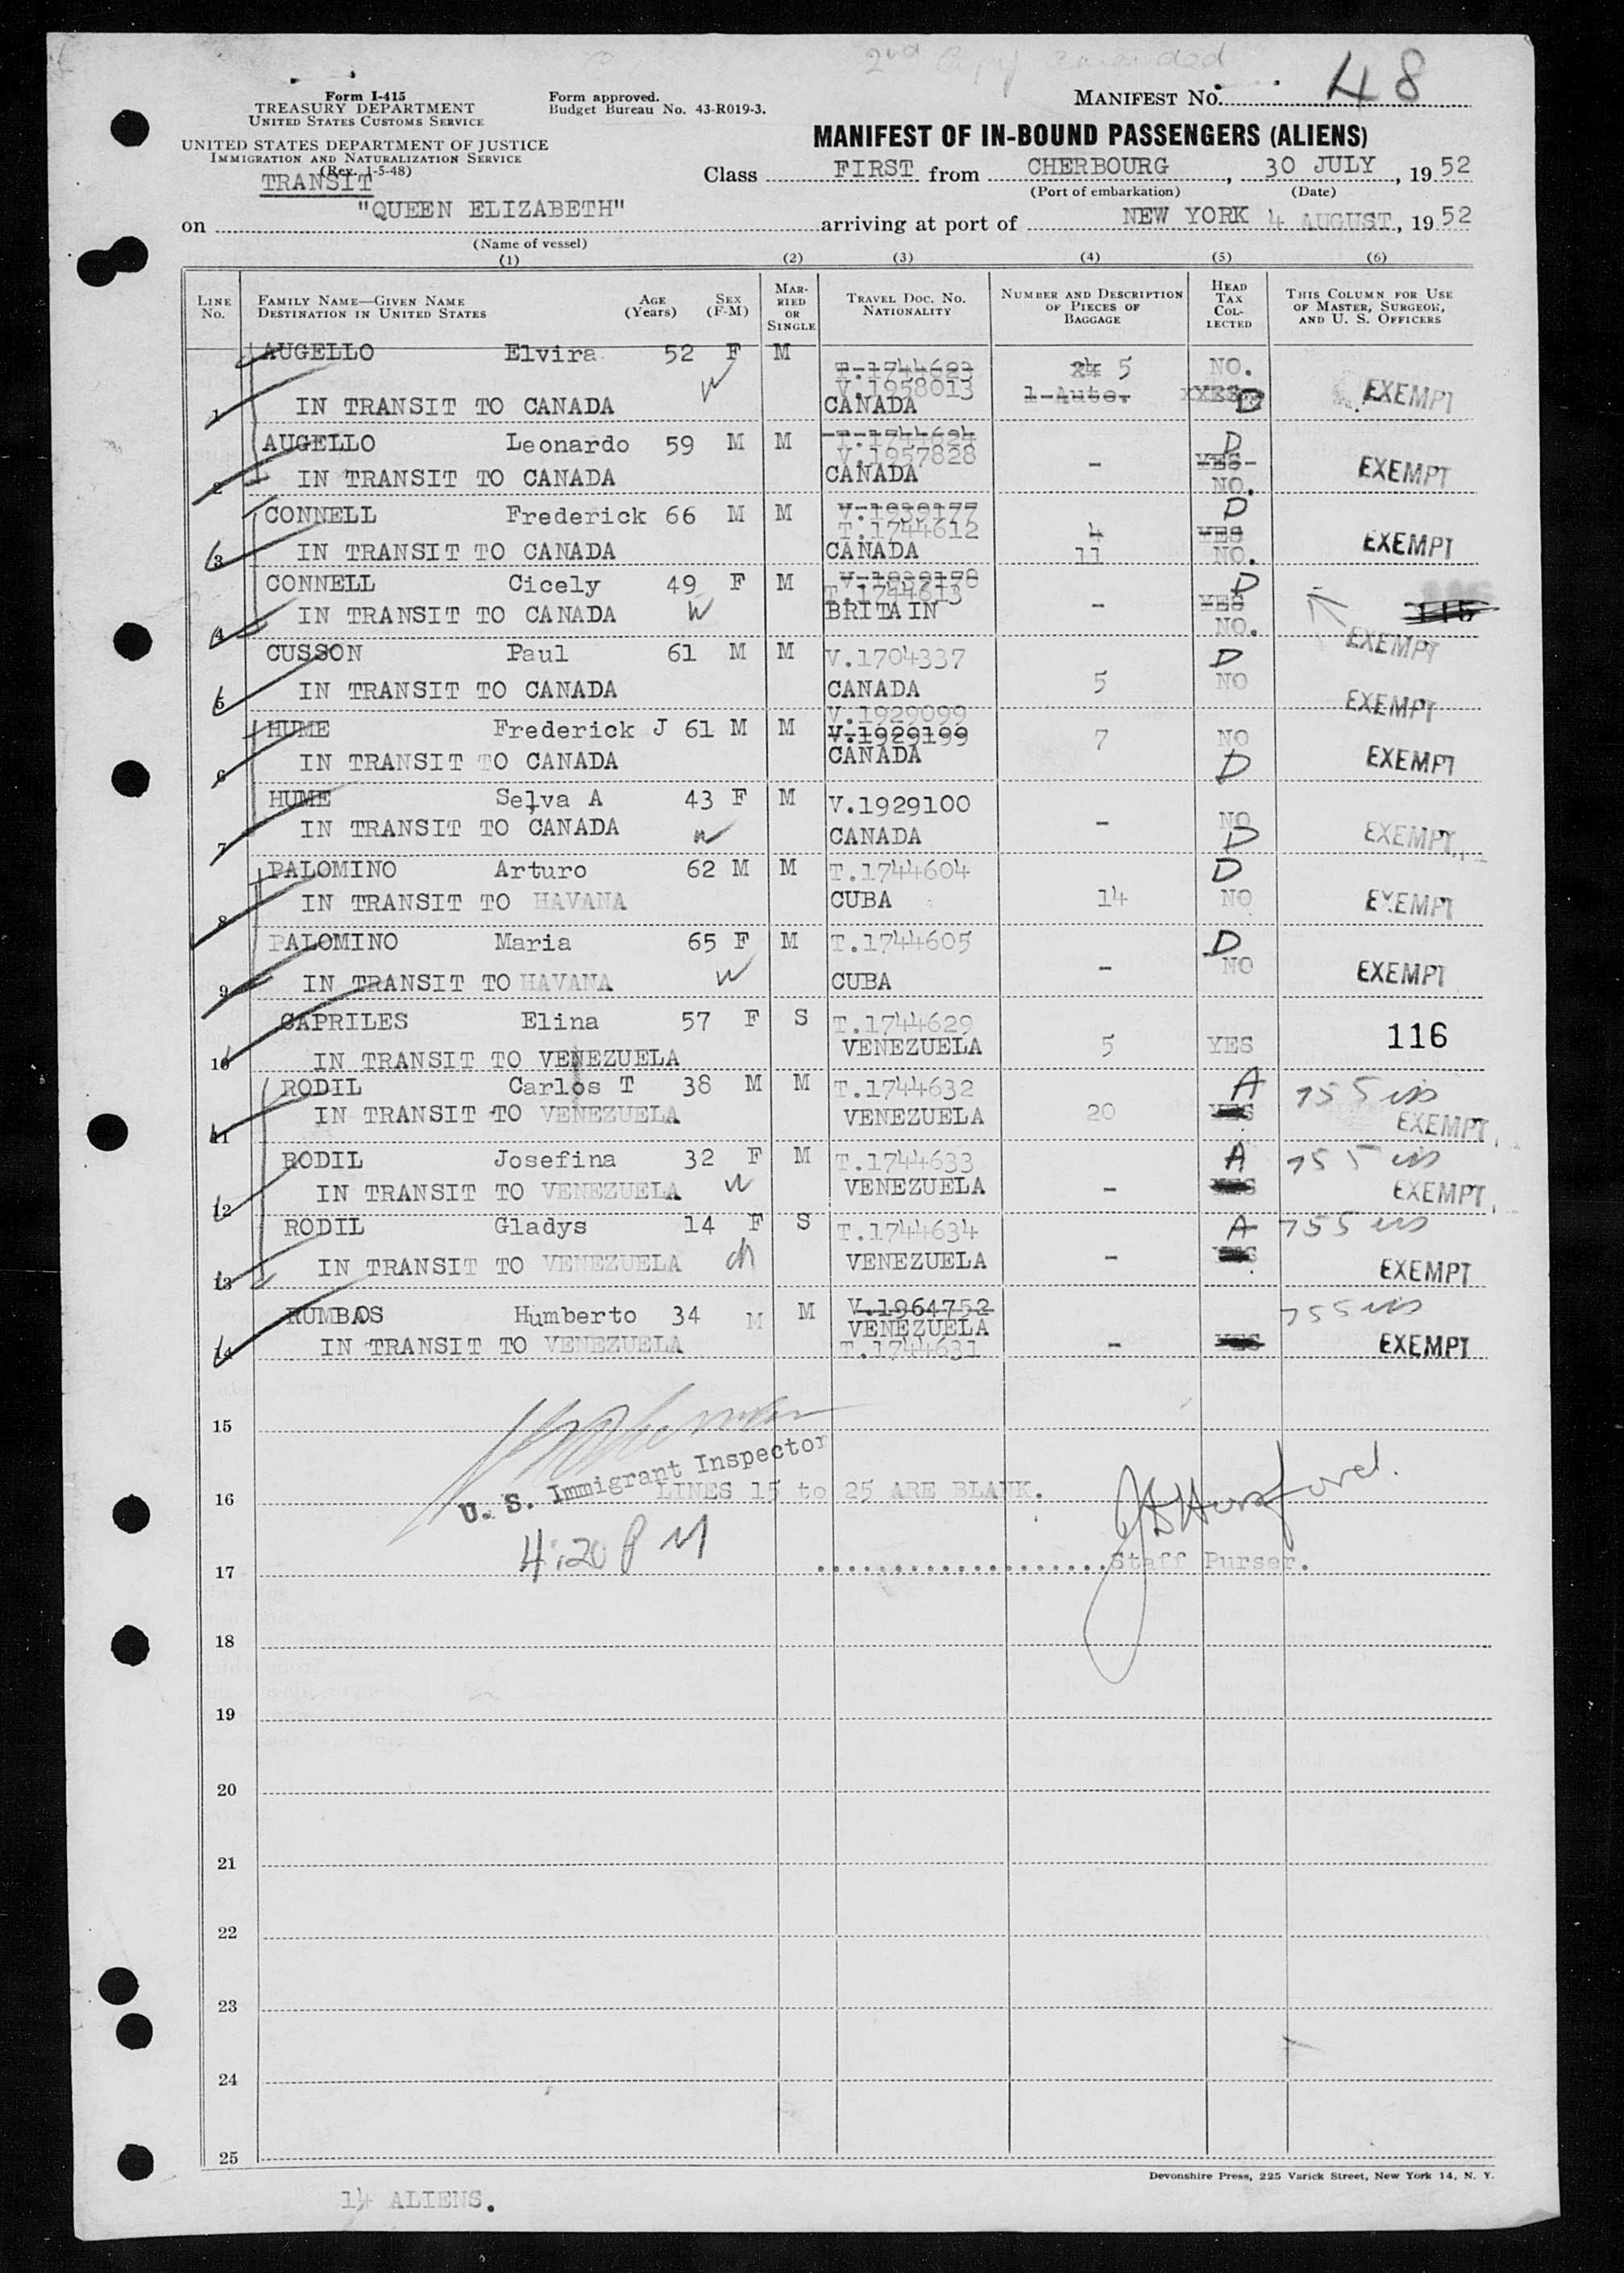 2nd Copy amended
Form I-415
TREASURY DEPARTMENT
UNITED STATES CUSTOMS SERVICE
Form approved.
Budget Bureau No. 43-R019-3.
MANIFEST No. 48
UNITED STATES DEPARTMENT OF JUSTICE
IMMIGRATION AND NATURALIZATION SERVICE
(Rev. 1-5-48)
TRANSIT
MANIFEST OF IN-BOUND PASSENGERS (ALIENS)
Class FIRST from CHERBOURG, 30 JULY, 1952
(Port of embarkation) (Date)
on "QUEEN ELIZABETH" arriving at port of NEW YORK 4 AUGUST, 1952
(Name of vessel)
(1) (2) (3) (4) (5) (6)
LINE No. FAMILY NAME—GIVEN NAME DESTINATION IN UNITED STATES AGE (Years) SEX (F-M) MARRIED OR SINGLE TRAVEL DOC. NO. NATIONALITY NUMBER AND DESCRIPTION OF PIECES OF BAGGAGE HEAD TAX COLLECTED THIS COLUMN FOR USE OF MASTER, SURGEON, AND U. S. OFFICERS
AUGELLO Elvira 52 F M T.1744623 24 5 NO.
W V.1958013 1-Auto. XXES. D EXEMPT
1 IN TRANSIT TO CANADA CANADA
AUGELLO Leonardo 59 M M T.1744624 D
V.1957828 - YES EXEMPT
2 IN TRANSIT TO CANADA CANADA NO.
CONNELL Frederick 66 M M V.1939177 D
T.1744612 4 YES EXEMPT
3 IN TRANSIT TO CANADA CANADA 11 NO.
CONNELL Cicely 49 F M V.1939178 D
T.1744613 - YES 115
4 IN TRANSIT TO CANADA W BRITAIN NO. EXEMPT
CUSSON Paul 61 M M V.1704337 D
5 IN TRANSIT TO CANADA CANADA 5 NO EXEMPT
V.1929099
HUME Frederick J 61 M M V.1929199 7 NO
6 IN TRANSIT TO CANADA CANADA D EXEMPT
HUME Selva A 43 F M V.1929100 - NO
7 IN TRANSIT TO CANADA W CANADA D EXEMPT
PALOMINO Arturo 62 M M T.1744604 D
8 IN TRANSIT TO HAVANA CUBA 14 NO EXEMPT
PALOMINO Maria 65 F M T.1744605 D
9 IN TRANSIT TO HAVANA W CUBA - NO EXEMPT
CAPRILES Elina 57 F S T.1744629
10 IN TRANSIT TO VENEZUELA VENEZUELA 5 YES 116
RODIL Carlos T 38 M M T.1744632 A 755
11 IN TRANSIT TO VENEZUELA VENEZUELA 20 YES EXEMPT
RODIL Josefina 32 F M T.1744633 A 755
12 IN TRANSIT TO VENEZUELA W VENEZUELA - YES EXEMPT
RODIL Gladys 14 F S T.1744634 A 755
13 IN TRANSIT TO VENEZUELA ch VENEZUELA - YES EXEMPT
RUMBOS Humberto 34 M M V.1964752 755
14 IN TRANSIT TO VENEZUELA VENEZUELA - YES EXEMPT
T.1744631
15
U. S. Immigrant Inspector
16 LINES 15 to 25 ARE BLANK.
4:20 PM
17 Staff Purser.
18
19
20
21
22
23
24
25
Devonshire Press, 225 Varick Street, New York 14, N. Y.
14 ALIENS.